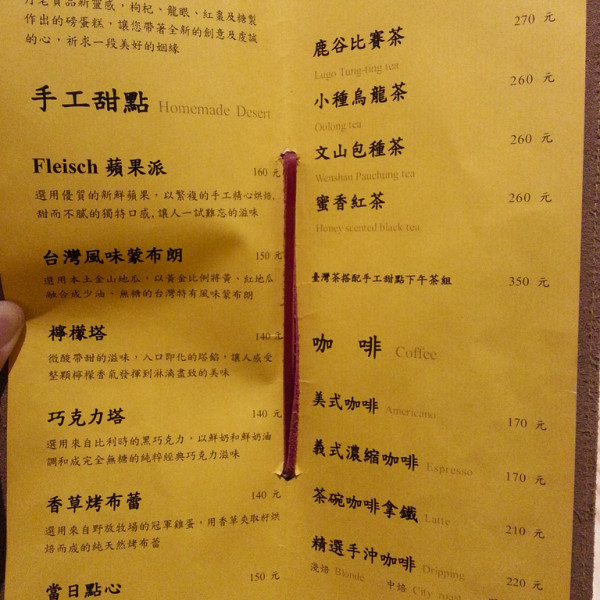 作出的磅蛋糕，讓您帶著全新的創意及虔誠
的心，祈求一段美好的姻緣
手工甜點 Homemade Desert
Fleisch 蘋果派 160 元
選用優質的新鮮蘋果，以繁複的手工精心烘焙，
甜而不膩的獨特口感，讓人一試難忘的滋味
台灣風味蒙布朗 150 元
選用本土金山地瓜，以黃金比例將黃、紅地瓜
融合成少油、無糖的台灣特有風味蒙布朗
檸檬塔 140 元
微酸帶甜的滋味，入口即化的塔餡，讓人感受
整顆檸檬香氣發揮到淋漓盡致的美味
巧克力塔 140 元
選用來自比利時的黑巧克力，以鮮奶和鮮奶油
調和成完全無糖的純粹經典巧克力滋味
香草烤布蕾 140 元
選用來自野放牧場的冠軍雞蛋，用香草夾取籽烘
焙而成的純天然烤布蕾
當日點心 150 元
270 元
鹿谷比賽茶
Lugo Tung-ting tea
260 元
小種烏龍茶
Oolong tea
260 元
文山包種茶
Wenshan Pauchung tea
260 元
蜜香紅茶
Honey scented black tea
臺灣茶搭配手工甜點下午茶組 350 元
咖啡 Coffee
美式咖啡 Americano 170 元
義式濃縮咖啡 Espresso 170 元
茶碗咖啡拿鐵 Latte 210 元
精選手沖咖啡 Dripping 220 元
淺焙 Blonde 中焙 City roast